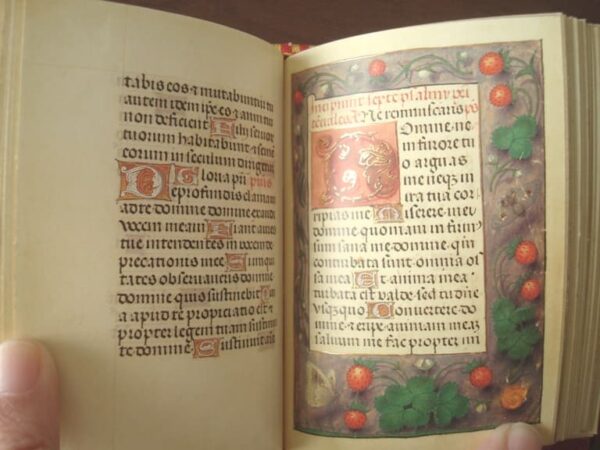 tabis eos ⁊ mutabuntur tu
autem idem ipse es ⁊ anni tui
non deficient Filii servor
tuorum habitabunt ⁊ semē
eorum in seculum dirigetur
Gloria p̄ri Psus
De profundis clamavi
ad te domine domine exaudi
vocem meam Fiant aures
tue intendentes in vocem de
precationis mee Si iniqui
tates observaveris domine
domine quis sustinebit Qui
a apud te propiciatio est ⁊
propter legem tuam sustinui
te domine Sustinuit aīa
Incipiunt septe psalmi pei
tēciales Añ Ne reminiscaris ps
Domine ne
in furore tuo
arguas
me neqz in
ira tua cor
ripias me Miserere mei
domine quoniam infirmus
sum sana me domine qm̄
conturbata sunt omnia os
sa mea Et anima mea
turbata est valde sed tu dñe
usqzquo Convertere do
mine ⁊ eripe animam meaz
salvum me fac propter mi